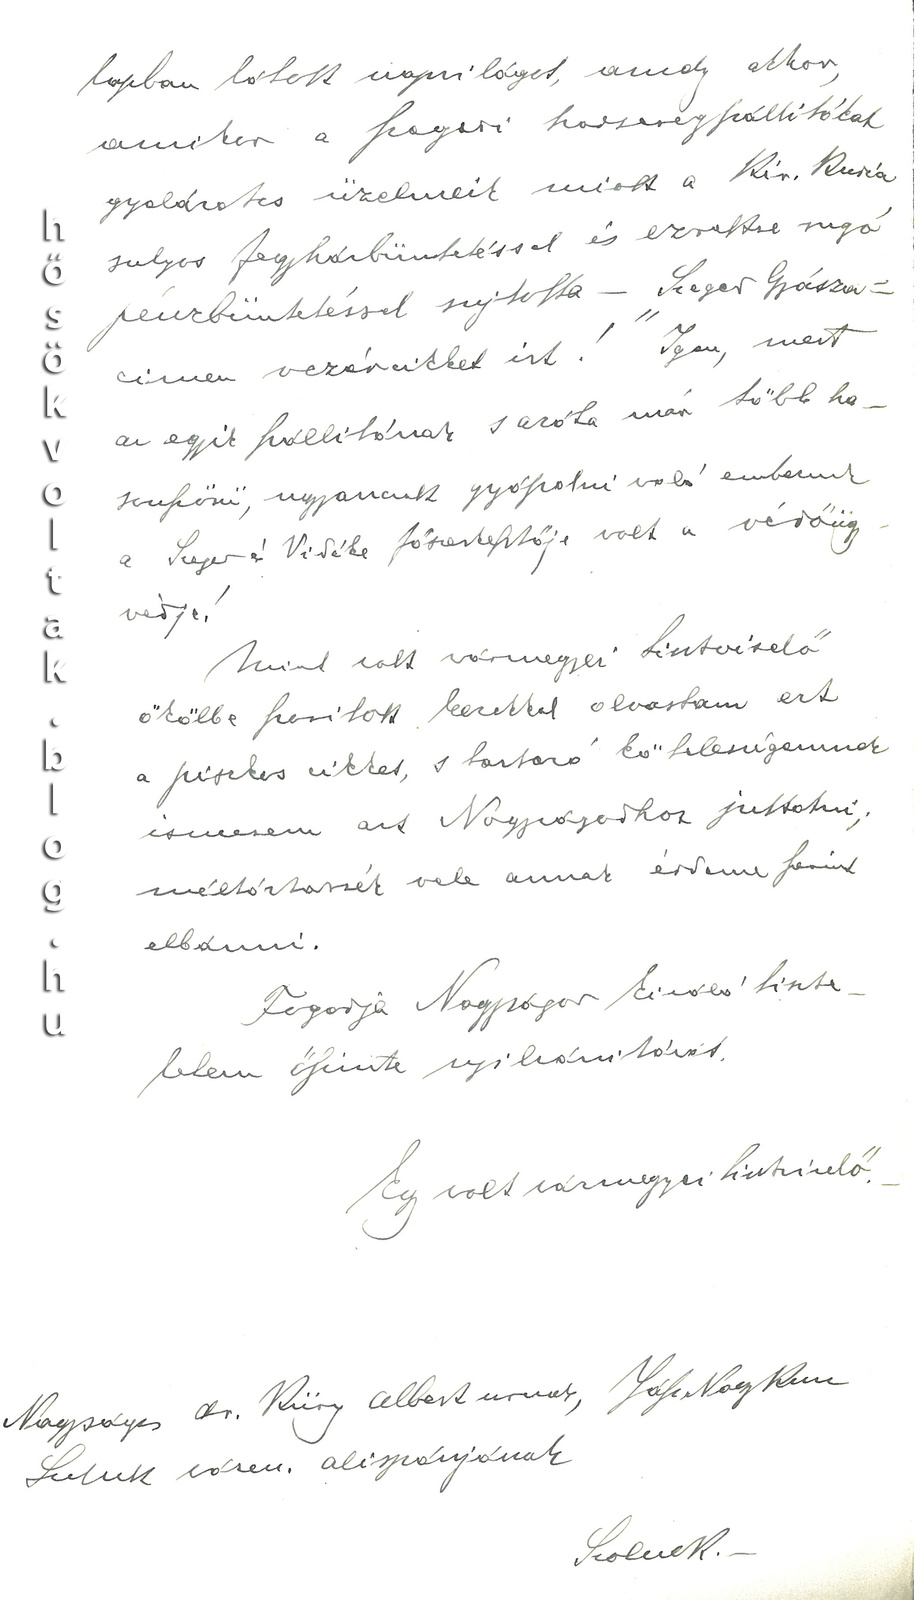 lapban látott napvilágot, amely akkor,
amikor a szegedi hadseregszállítókat
gyalázatos üzelmeik miatt a Kir. Kuria
sulyos fegyházbüntetéssel és ezrekre rugó
pénzbüntetéssel sujtotta – Szeged Gyásza =
cimen vezércikket írt! " Igen, mert
az egyik szállítónak s azóta már több ha-
sonszőrü, ugyancsak gyászolni való embernek
a Szeged és Vidéke főszerkesztője volt a védőügy-
védje!
Mint volt vármegyei tisztviselő
ökölbe szorított kezekkel olvastam ezt
a piszkos cikket, s tartozó kötelességemnek
ismerem azt Nagyságodhoz juttatni,
méltóztassék vele annak érdeme szerint
elbánni.
Fogadja Nagyságod kiváló tiszte-
letem őszinte nyilvánítását.
Egy volt vármegyei tisztviselő. –
Nagyságos dr. Küry Albert urnak, Jász Nagy Kun
Szolnok várm. alispánjának
Szolnok. –
hősökvoltak.blog.hu